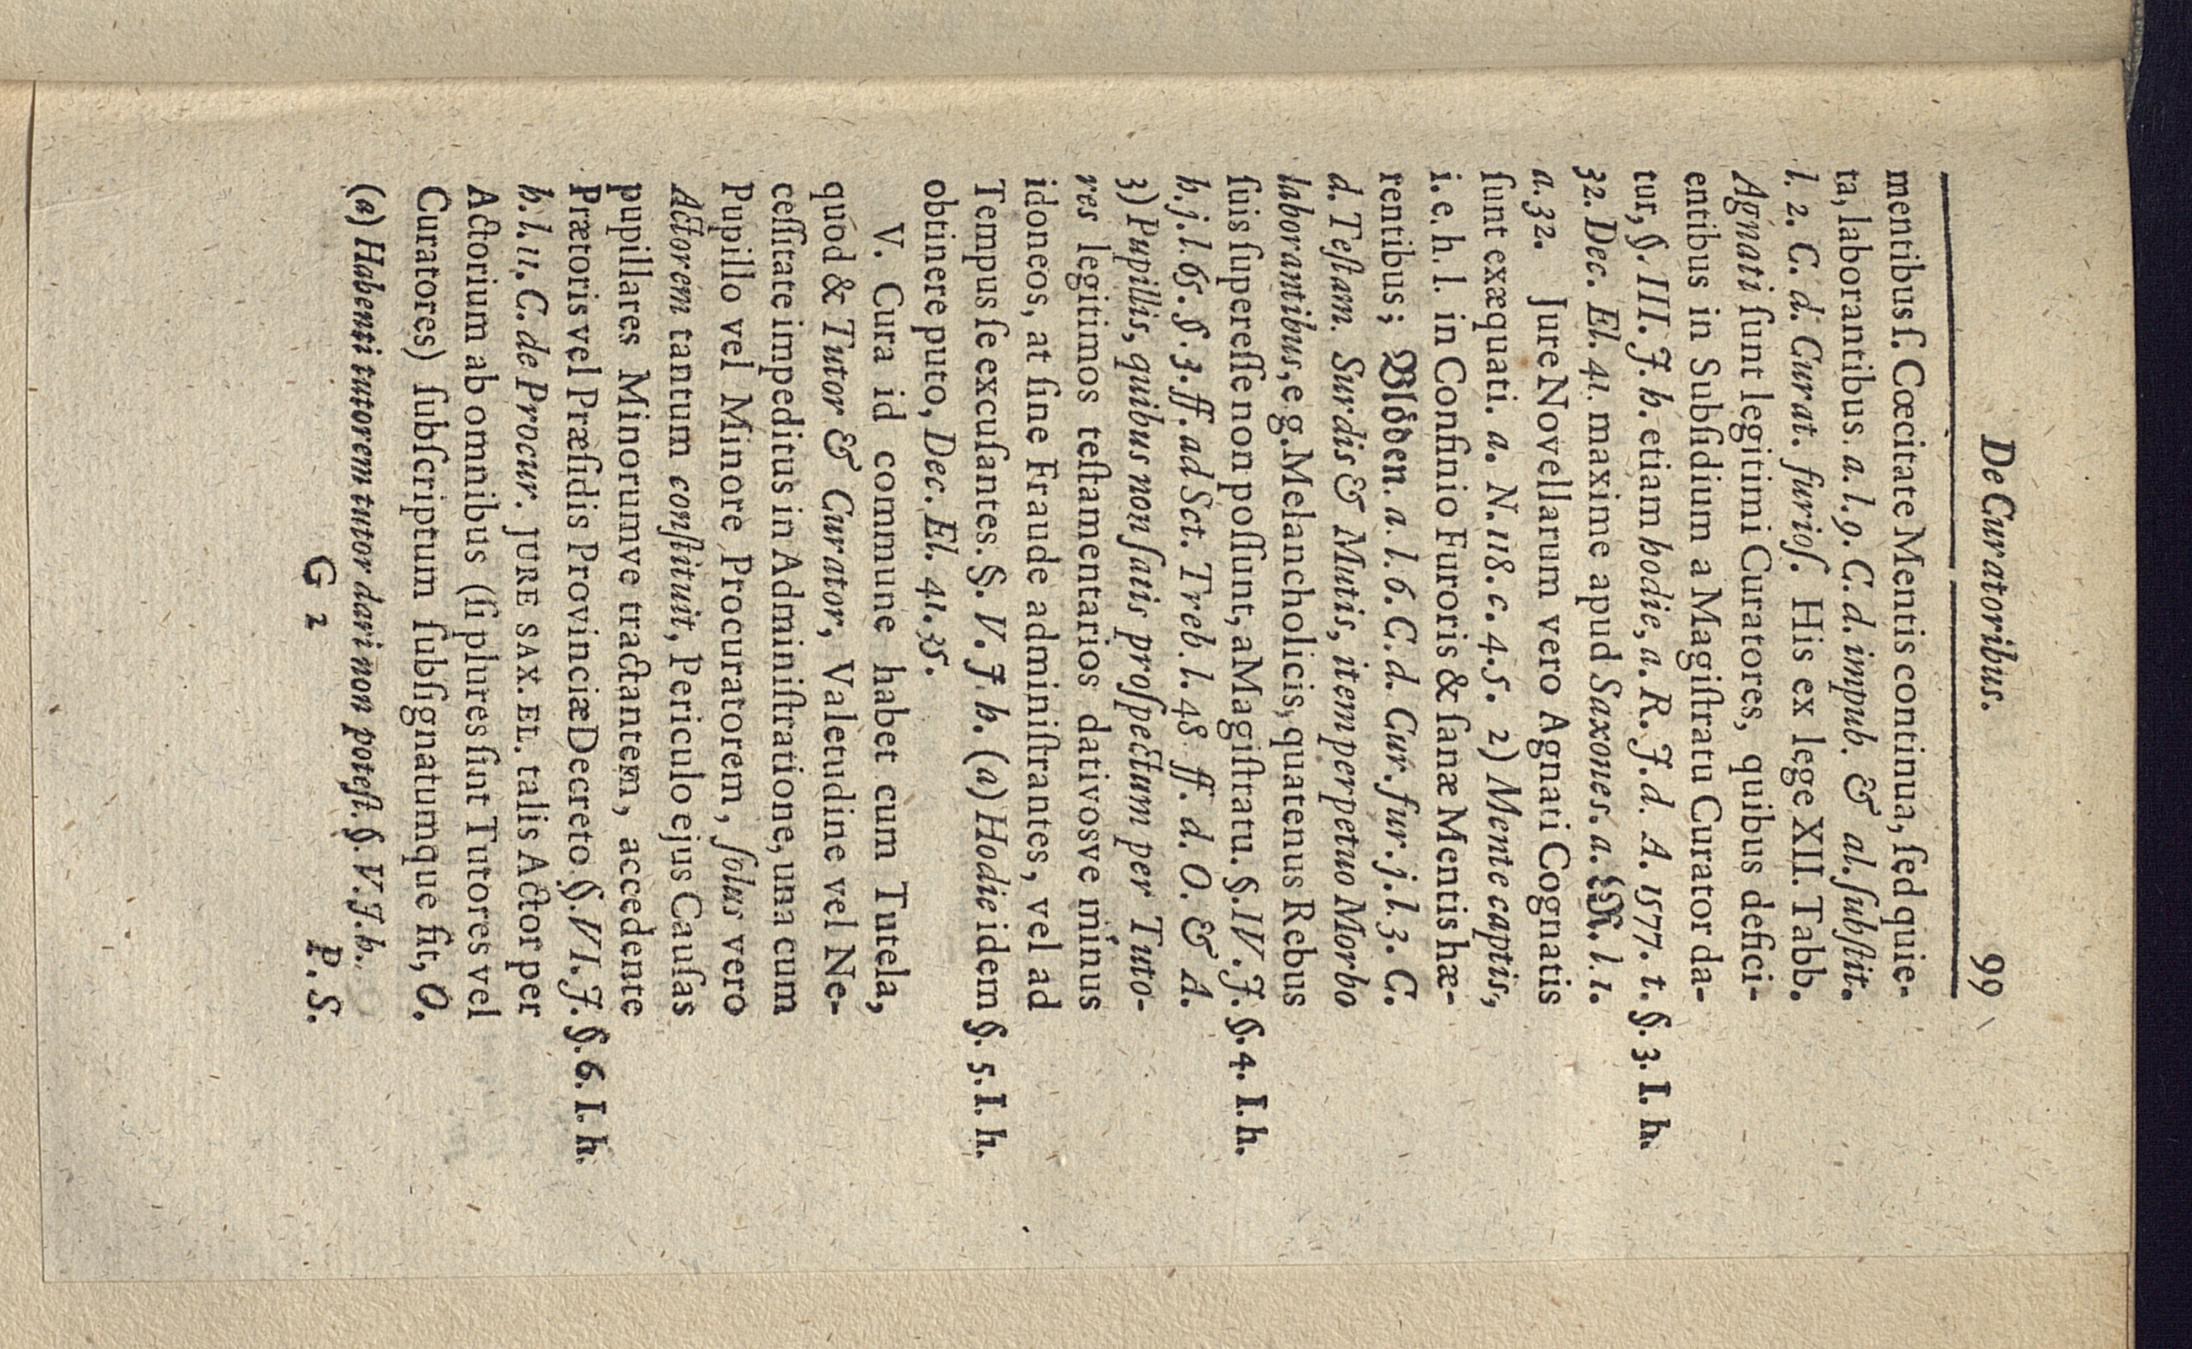 De Curatoribus. 99
mentibus ſ. Cœcitate Mentis continua, ſed quie-
ta, laborantibus. a. l. 9. C. d. impub. & al. ſubſtit.
l. 2. C. d. Curat. furioſ. His ex lege XII. Tabb.
Agnati ſunt legitimi Curatores, quibus defici-
entibus in Subſidium a Magiſtratu Curator da-
tur, §. III. J. h. etiam hodie, a. R. J. d. A. 1577. t. §. 3. I. h.
32. Dec. El. 41. maxime apud Saxones. a. L.R. l. 1.
a. 32. Jure Novellarum vero Agnati Cognatis
ſunt exæquati. a. N. 118. c. 4. 5. 2) Mente captis,
i. e. h. l. in Confinio Furoris & ſanæ Mentis hæ-
rentibus; Blöden. a. l. 6. C. d. Cur. fur. j. l. 3. C.
d. Teſtam. Surdis & Mutis, item perpetuo Morbo
laborantibus, e g. Melancholicis, quatenus Rebus
ſuis ſupereſſe non poſſunt, a Magiſtratu. §. IV. J. §. 4. I. h.
h. j. l. 65. §. 3. ff. ad Sct. Treb. l. 48 ff. d. O. & A.
3) Pupillis, quibus non ſatis proſpectum per Tuto-
res legitimos teſtamentarios dativosve minus
idoneos, at ſine Fraude adminiſtrantes, vel ad
Tempus ſe excuſantes. §. V. J. h. (a) Hodie idem §. 5. I. h.
obtinere puto, Dec. El. 41. 35.
V. Cura id commune habet cum Tutela,
quod & Tutor & Curator, Valetudine vel Ne-
ceſſitate impeditus in Adminiſtratione, una cum
Pupillo vel Minore Procuratorem, ſolus vero
Actorem tantum conſtituit, Periculo ejus Cauſas
pupillares Minorumve tractantem, accedente
Prætoris vel Præſidis Provinciæ Decreto §. VI. J. §. 6. I. h.
h. l. 11. C. de Procur. JURE SAX. EL. talis Actor per
Actorium ab omnibus (ſi plures ſint Tutores vel
Curatores) ſubſcriptum ſubſignatumque fit, O.
(a) Habenti tutorem tutor dari non poteſt. §. V. J. h.
G 2 P. S.